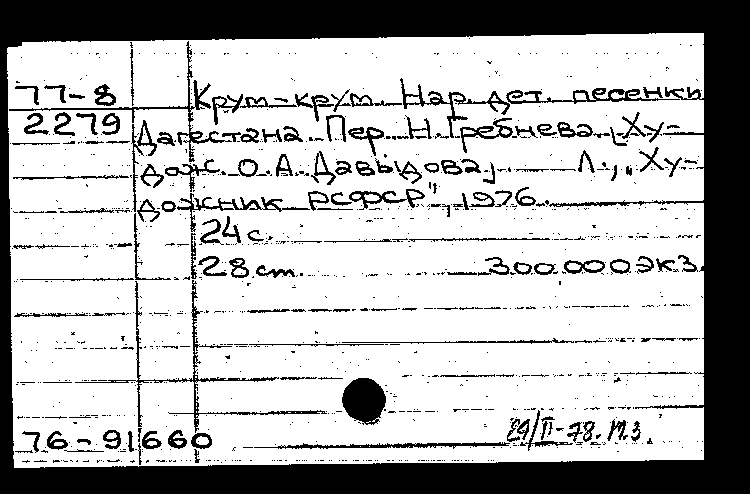 77-8 Крут-крут. Нар. дет. песенки
2279 Дагестана. Пер. Н. Гребнева. [Ху-
дож. О. А. Давыдова]. Л., „Ху-
дожник РСФСР", 1976.
24 с.
28 ст. 300.000 экз.
76-91660 24/II-78. М.З.